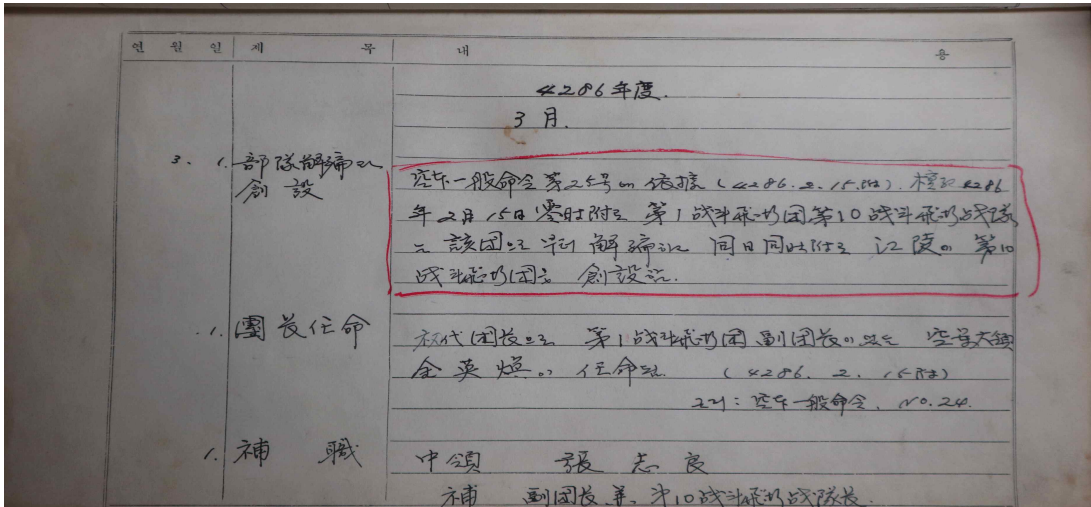 연 월 일 제 목 내 용
4286年度.
3 月.
3. 1. 部隊解編과
創設
空本一般命令 第25号에 依據 (4286.2.15.附). 檀紀 4286
年 2月 15日 零時附로 第1战斗飛行团 第10战斗飛行战隊
는 該团으로부터 解編되고 同日同時附로 江陵에 第10
战斗飛行团을 創設함.
1. 團長任命
初代团長으로 第1战斗飛行团 副团長이었든 空軍大領
金英煥이 任命됨. (4286. 2. 15附)
근거: 空本一般命令. No.24.
1. 補 職
中領 張志良
補 副团長 兼. 第10战斗飛行战隊長.